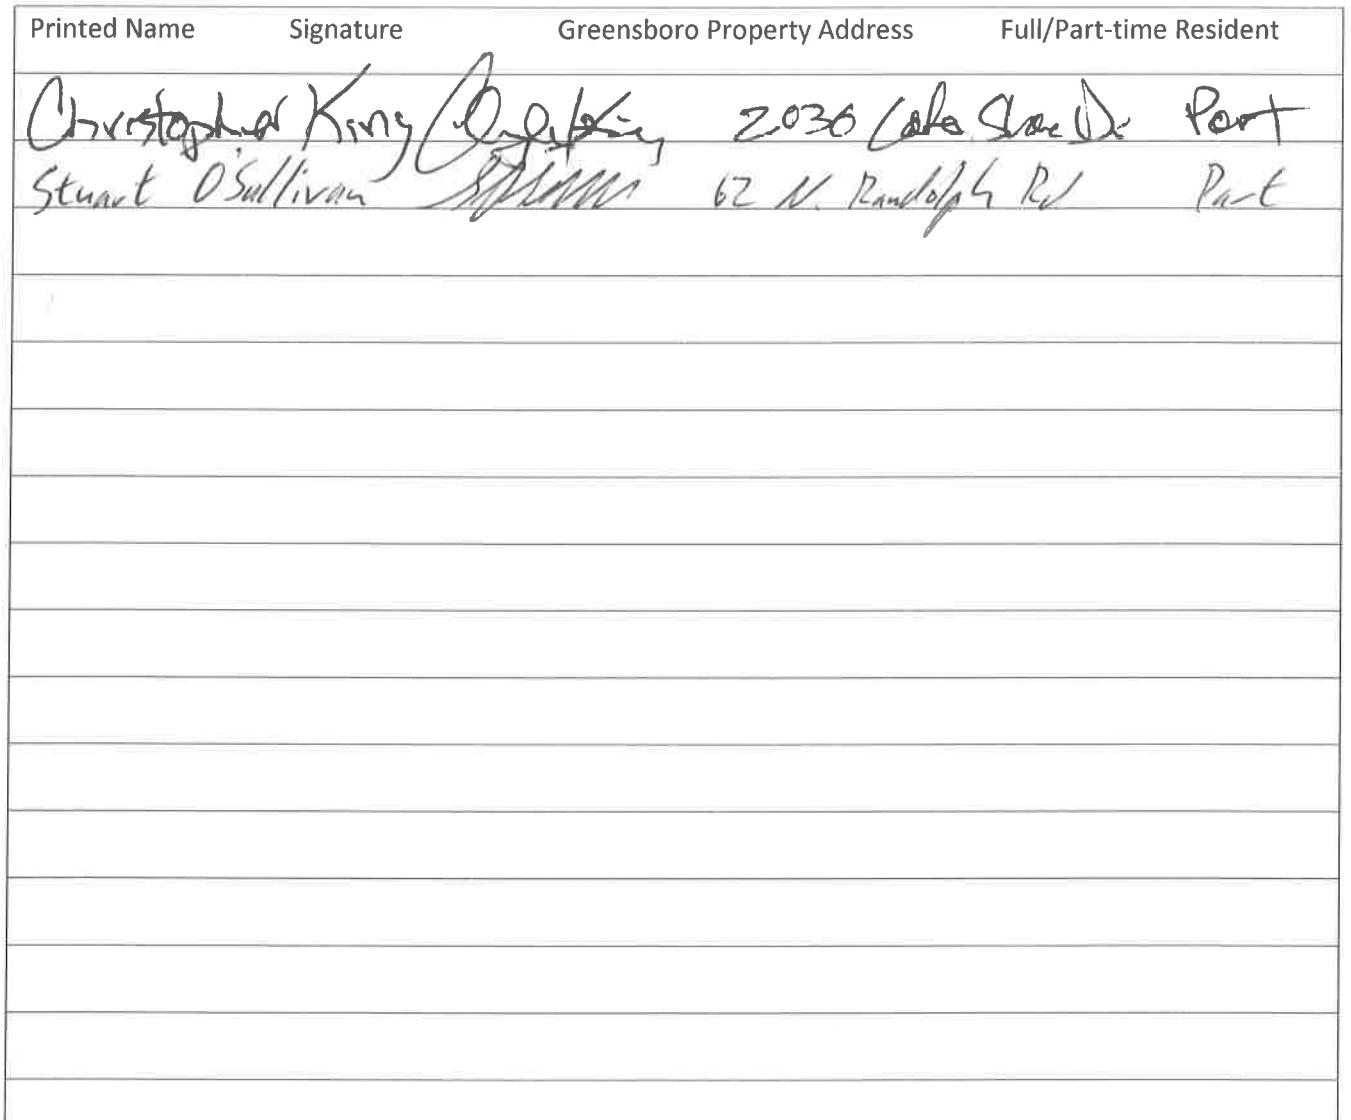 Printed Name Signature Greensboro Property Address Full/Part-time Resident
Christopher King 2030 Lake Shore Dr Part
Stuart O'Sullivan 62 N. Randolph Rd Part